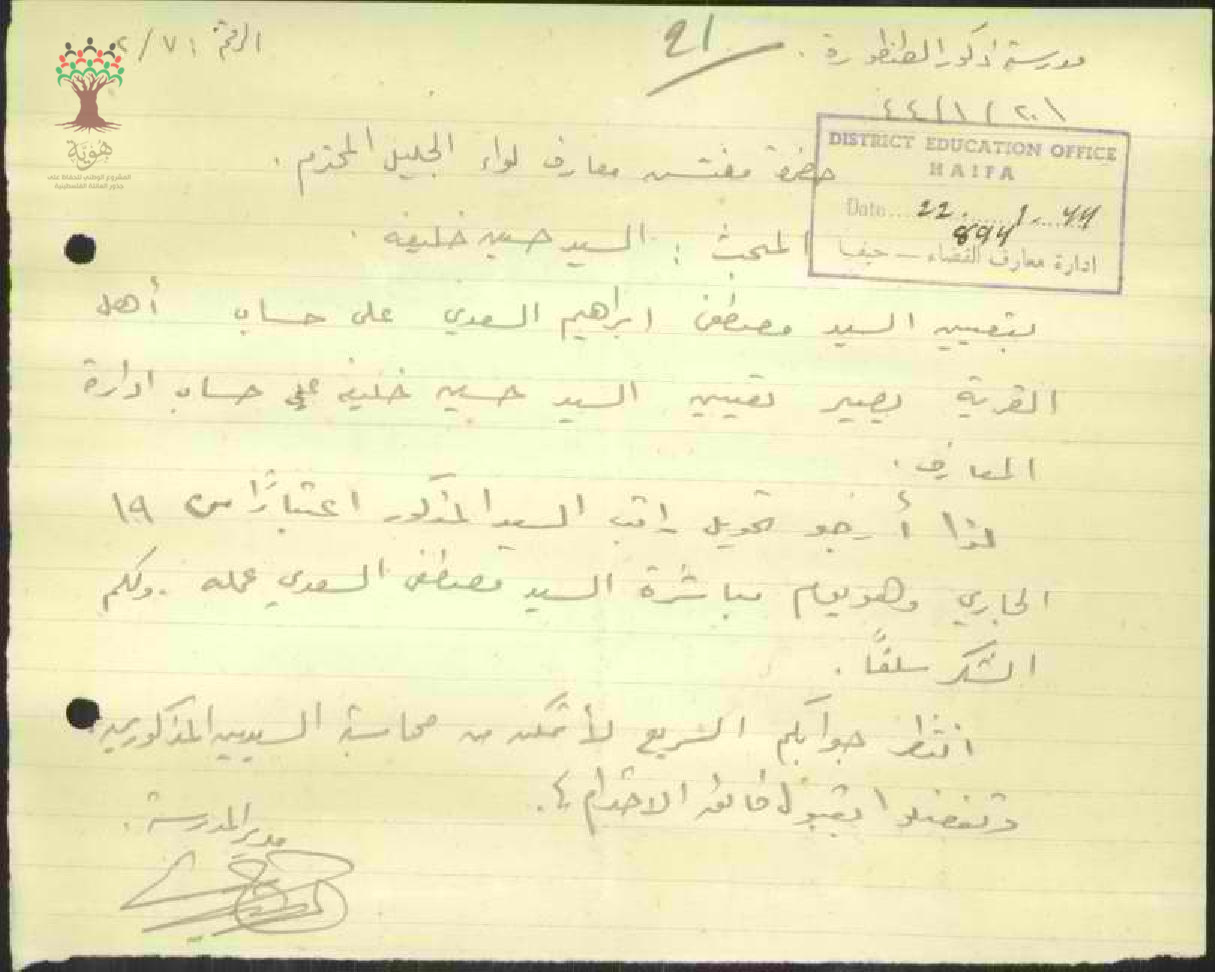 مدرسة ذكور الطنطورة.
الرقم: ٢/٧١
21
٢٠/١/٤٤
DISTRICT EDUCATION OFFICE
HAIFA
Date....22......1.....44
894
ادارة معارف القضاء — حيفا
حضرة مفتش معارف لواء الجليل المحترم.
المبحث: السيد حسين خليفه.
بتعيين السيد مصطفى ابراهيم السعدي على حساب أهل
القرية يصير تعيين السيد حسين خليفه على حساب ادارة
المعارف.
لذا أرجو تحويل راتب السيد المذكور اعتبارًا من ١٩
الجاري وهو يوم مباشرة السيد مصطفى السعدي عمله. ولكم
الشكر سلفًا.
انتظر جوابكم السريع لأتمكن من محاسبة السيدين المذكورين.
وتفضلوا بقبول فائق الاحترام.
مدير المدرسة.
هوية
المشروع الوطني للحفاظ على
جذور العائلة الفلسطينية